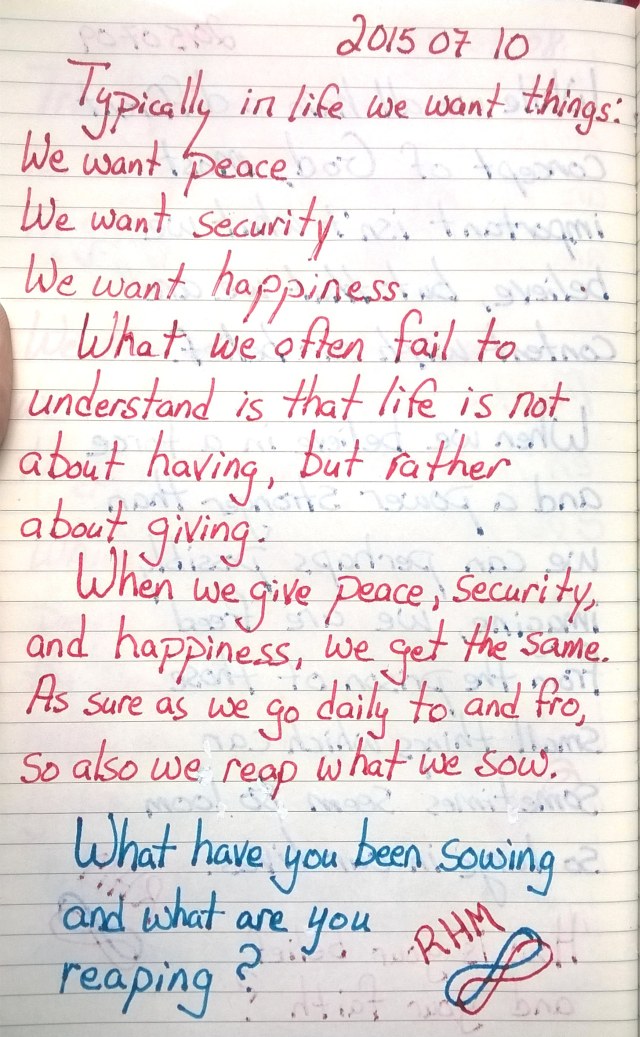 2015 07 10
Typically in life we want things:
We want peace
We want security
We want happiness.
What we often fail to
understand is that life is not
about having, but rather
about giving.
When we give peace, security,
and happiness, we get the same.
As sure as we go daily to and fro,
so also we reap what we sow.
What have you been sowing
and what are you
reaping?
RHM